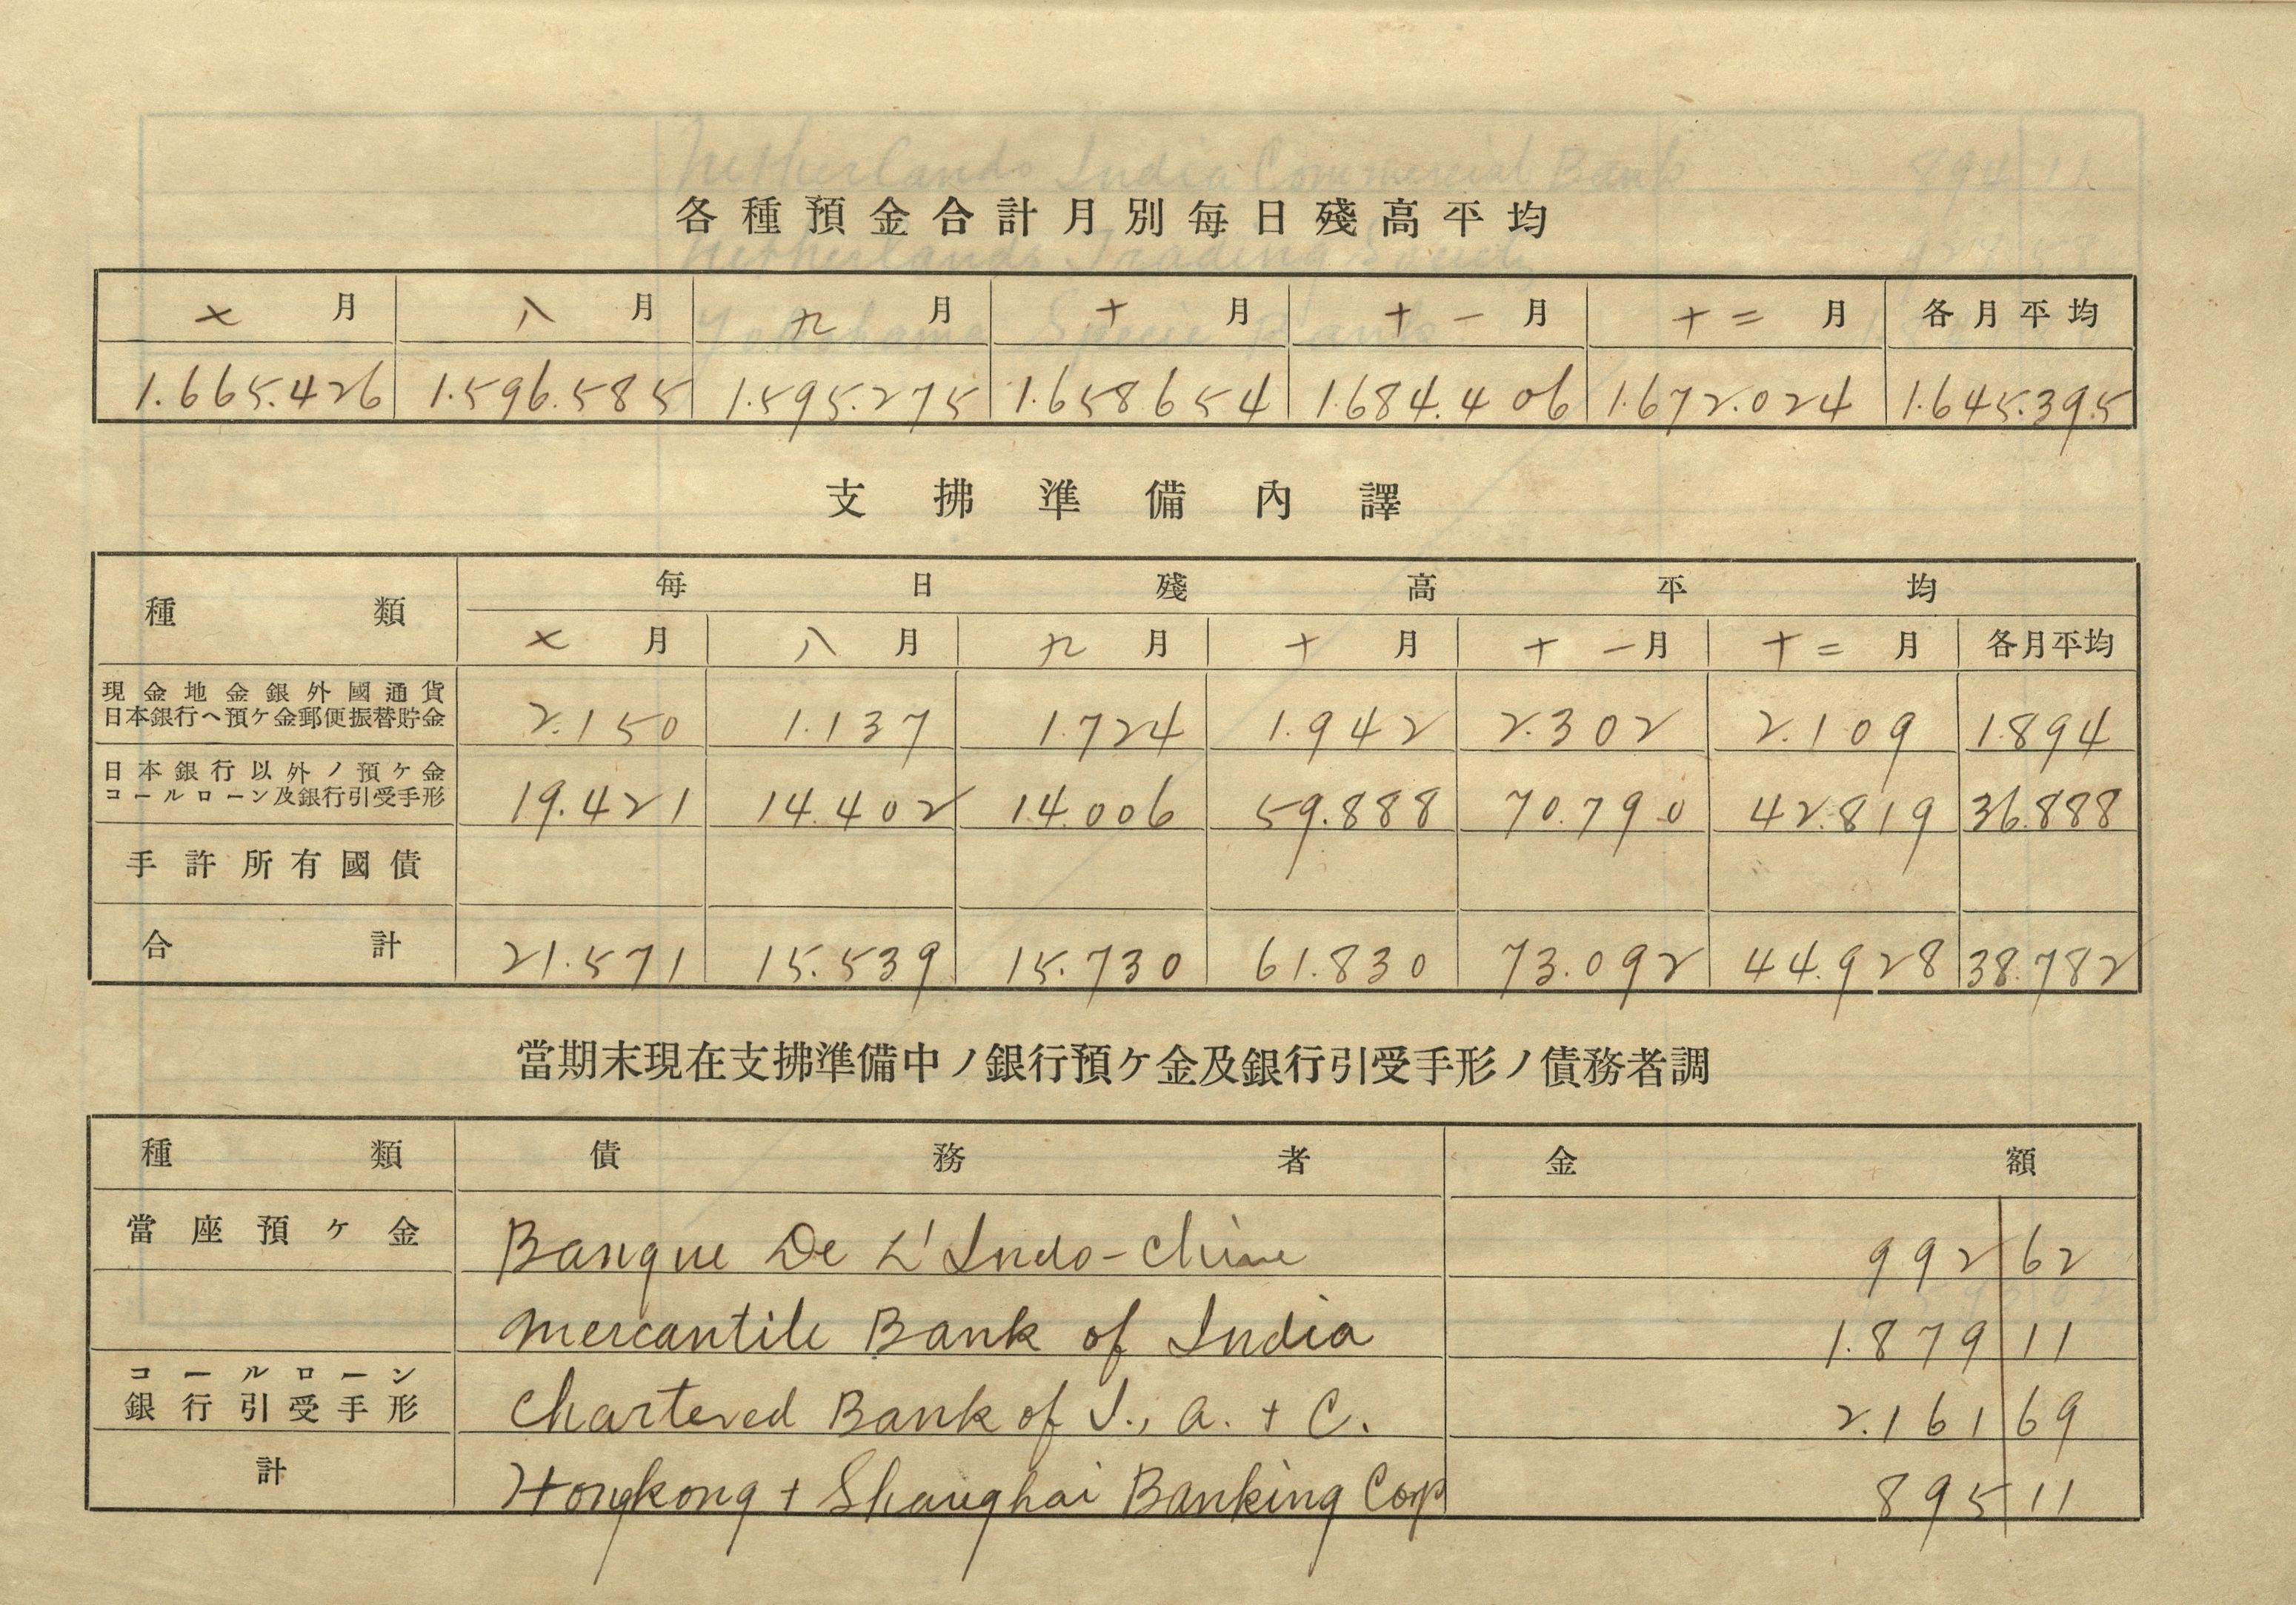 各種預金合計月別每日殘高平均
七月 八月 九月 十月 十一月 十二月 各月平均
1.665.426 1.596.585 1.595.275 1.658.654 1.684.406 1.672.024 1.645.395
支拂準備內譯
種類 每日殘高平均
七月 八月 九月 十月 十一月 十二月 各月平均
現金地金銀外國通貨
日本銀行へ預ケ金郵便振替貯金 2.150 1.137 1.724 1.942 2.302 2.109 1.894
日本銀行以外ノ預ケ金
コールローン及銀行引受手形 19.421 14.402 14.006 59.888 70.790 42.819 36.888
手許所有國債
合計 21.571 15.539 15.730 61.830 73.092 44.928 38.782
當期末現在支拂準備中ノ銀行預ケ金及銀行引受手形ノ債務者調
種類 債務者 金額
當座預ケ金 Banque De L'Indo-Chine 992 62
Mercantile Bank of India 1.879 11
コールローン
銀行引受手形 Chartered Bank of I., A. + C. 2.161 69
計 Hongkong + Shanghai Banking Corp 895 11